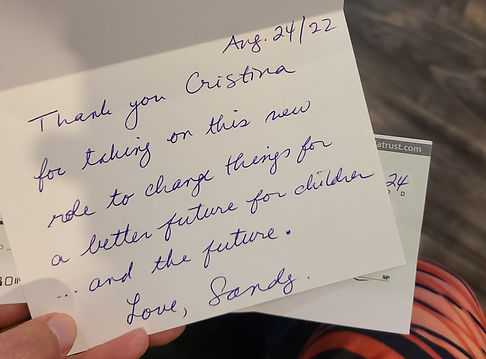 Aug. 24/22
Thank you Cristina
for taking on this new
role to change things for
a better future for children
... and the future.
Love, Sandy.
atrust.com
24